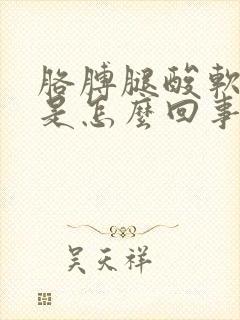 胳膊腿酸軟
是怎麼回事
吳天祥